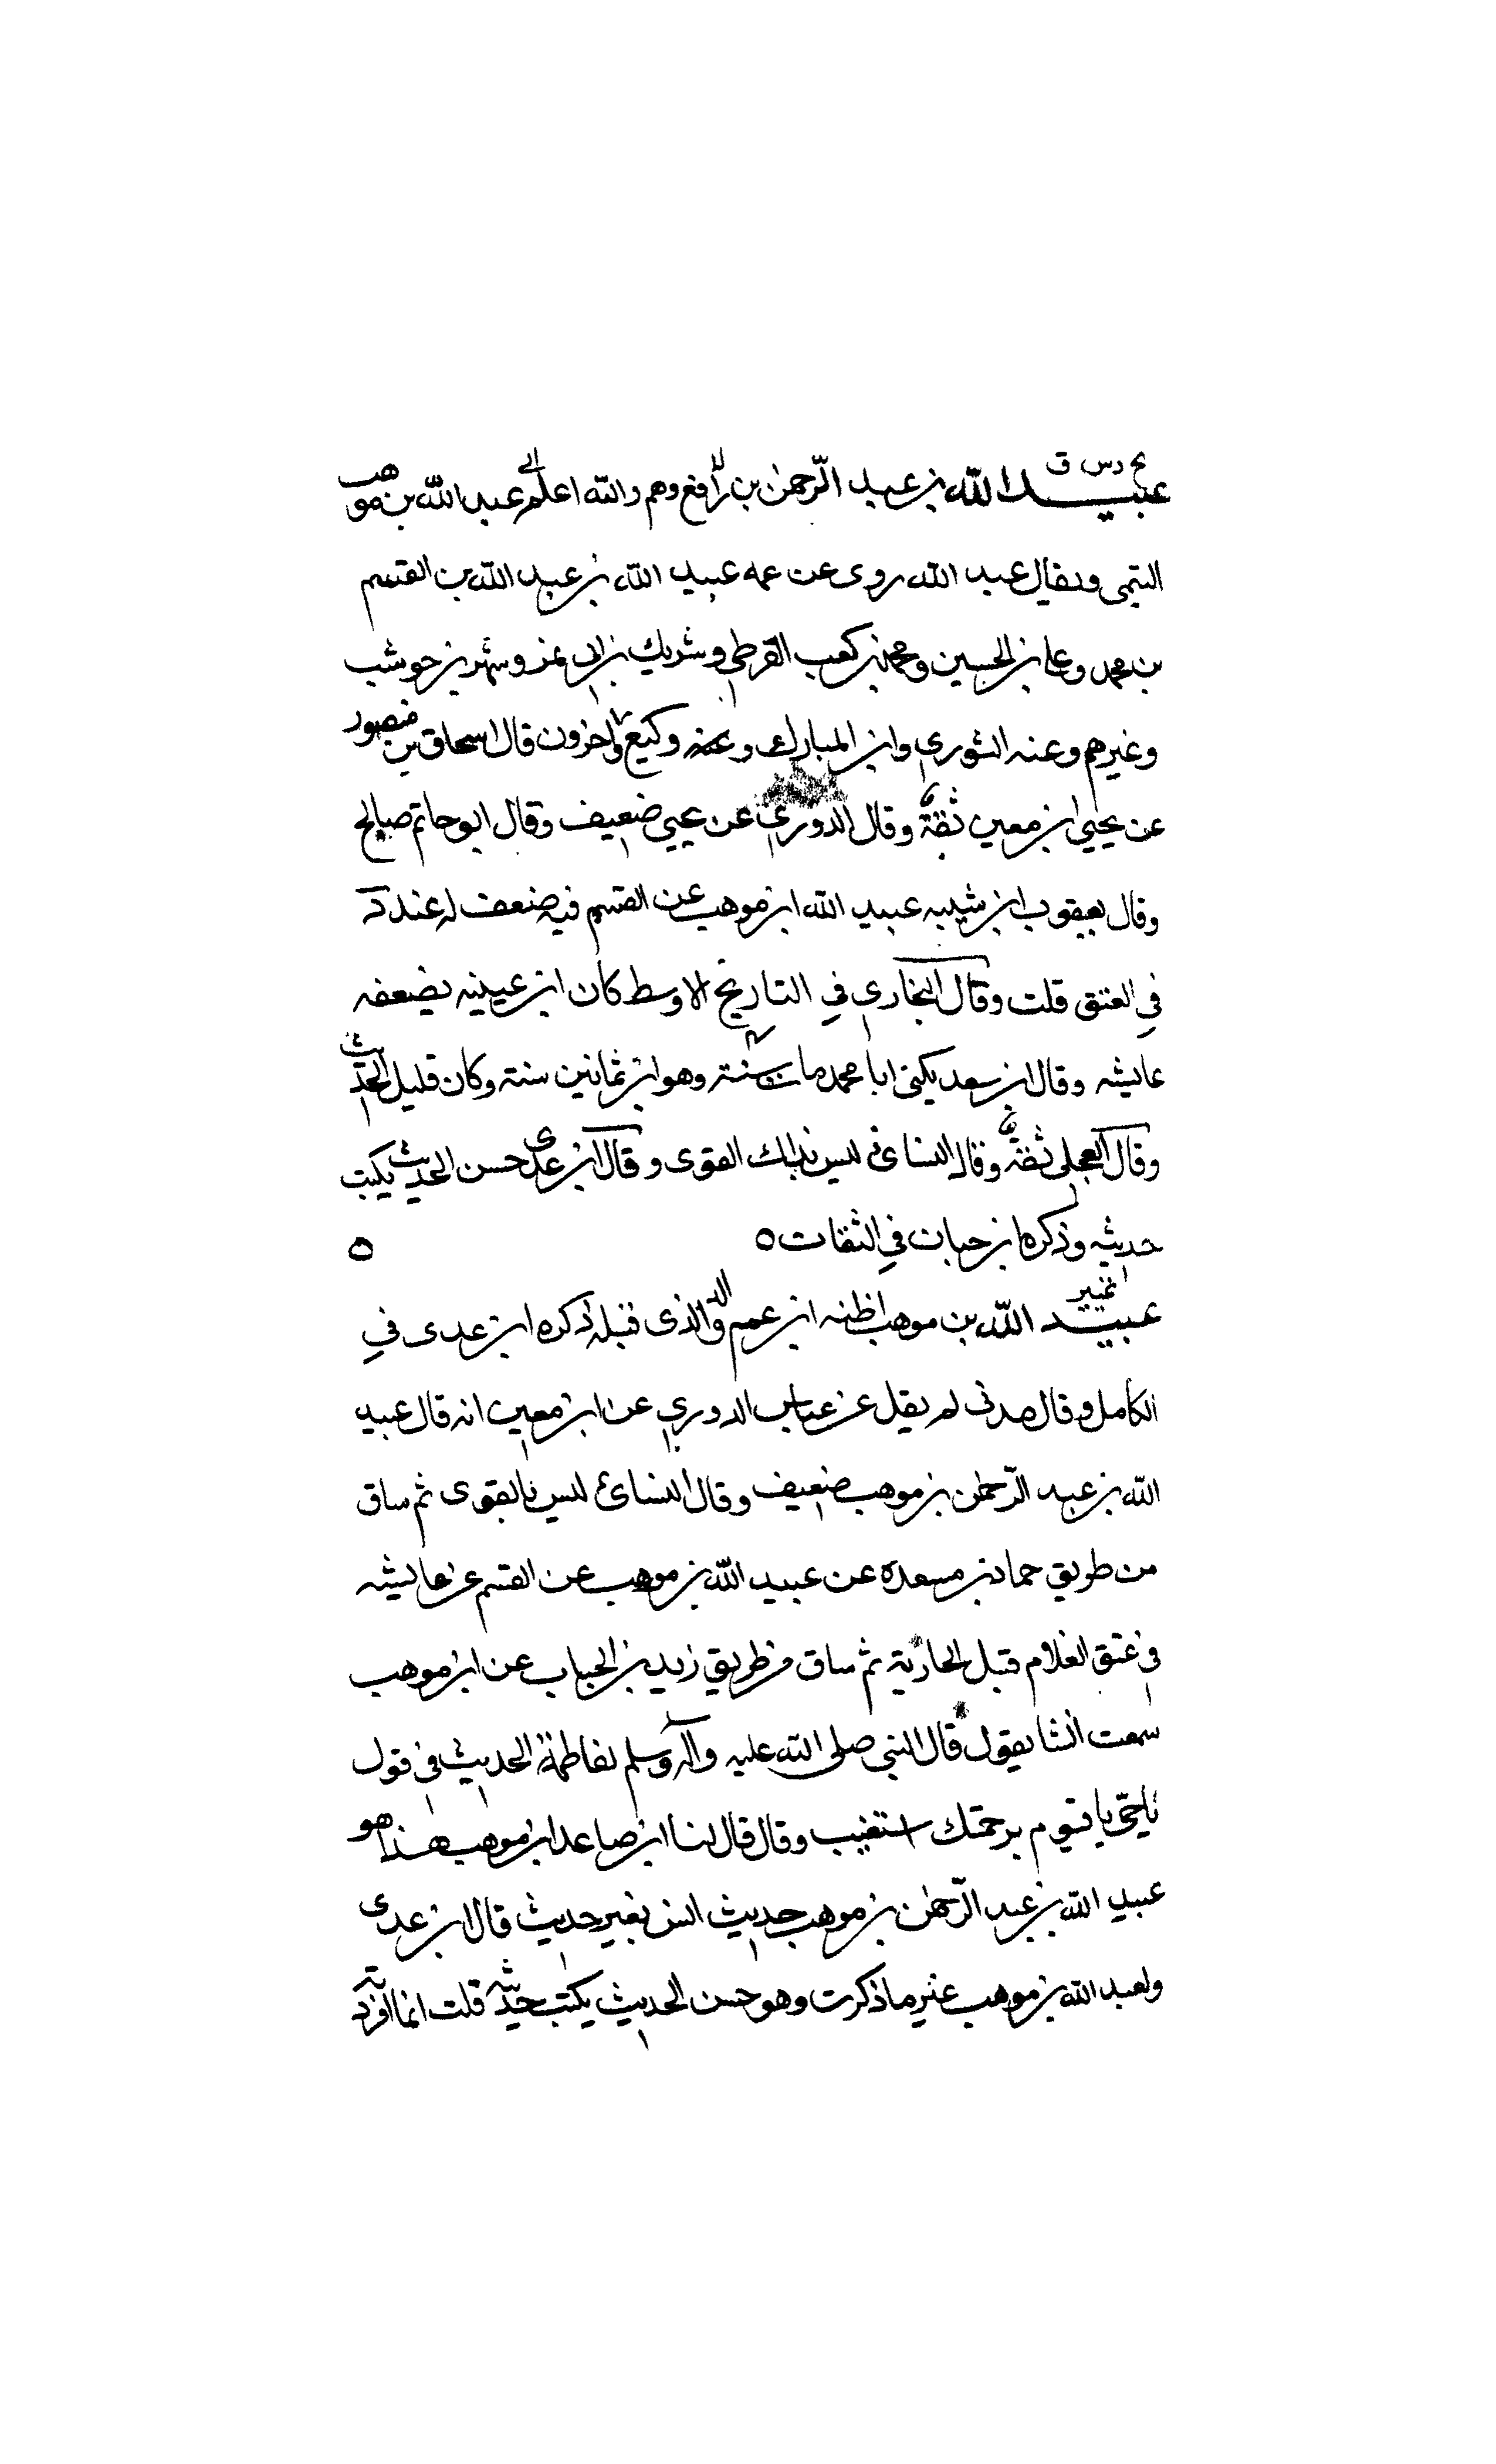 بخ د س ق
عبيد الله بن عبد الرحمن بن رافع وهم والله اعلم عبد الله بن موهب
التيمي ويقال عبد الله روى عن عمه عبيد الله بن عبد الله بن القسم
بن محمد وعلى بن الحسين ومحمد بن كعب القرظي وشريك بن ابي نمر وشهر بن حوشب
وغيرهم وعنه الثوري وابن المبارك وعنه وكيع واخرون قال اسحاق بن منصور
عن يحيى ابن معين ثقة وقال الدوري عن يحيى ضعيف وقال ابو حاتم صالح
وقال يعقوب ابن شيبه عبيد الله ابن موهب عن القسم فيه ضعف له عند د
في العتق قلت وقال البخاري في التاريخ الاوسط كان ابن عيينه يضعفه
عايشه وقال ابن سعد يكنى ابا محمد مات سنة وهو ابن ثمانين سنة وكان قليل الحديث
وقال العجلي ثقة وقال النسائي ليس بذلك القوى وقال ابن عدى حسن الحديث يكتب
حديثه وذكره ابن حبان في الثقات ٥ ٥
تمييز
عبيد الله بن موهب اظنه ابن عم والد الذى قبله ذكره ابن عدى في
الكامل وقال مدني لم يقل عن عباس الدوري عن ابن معين انه قال عبيد
الله بن عبد الرحمن بن موهب ضعيف وقال النسائي ليس بالقوى ثم ساق
من طريق حماد بن مسعدة عن عبيد الله بن موهب عن القسم عن عايشه
في عتق الغلام قبل الجارية ثم ساق من طريق زيد بن الحباب عن ابن موهب
سمعت انسا يقول قال النبي صلى الله عليه وآله وسلم لفاطمة الحديث في قول
يا حي يا قيوم برحمتك استغيث وقال قال لنا ابن صاعد ابن موهب هذا هو
عبيد الله بن عبد الرحمن بن موهب حديث انس بغير حديث قال ابن عدى
ولعبد الله بن موهب غير ما ذكرت وهو حسن الحديث يكتب حديثه قلت انما افردته